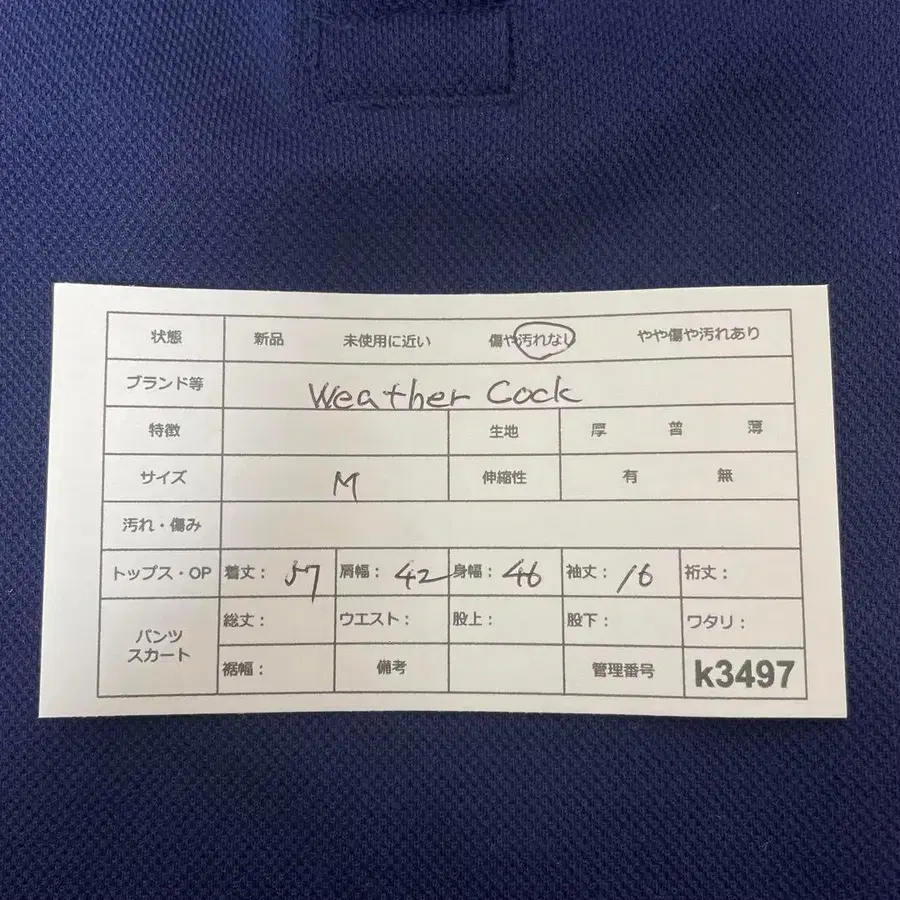 状態 新品 未使用に近い 傷や汚れなし やや傷や汚れあり
ブランド等 Weather Cock
特徴 生地 厚 普 薄
サイズ M 伸縮性 有 無
汚れ・傷み
トップス・OP 着丈： 57 肩幅： 42 身幅： 46 袖丈： 16 裄丈：
パンツ スカート 総丈： ウエスト： 股上： 股下： ワタリ：
裾幅： 備考 管理番号 k3497